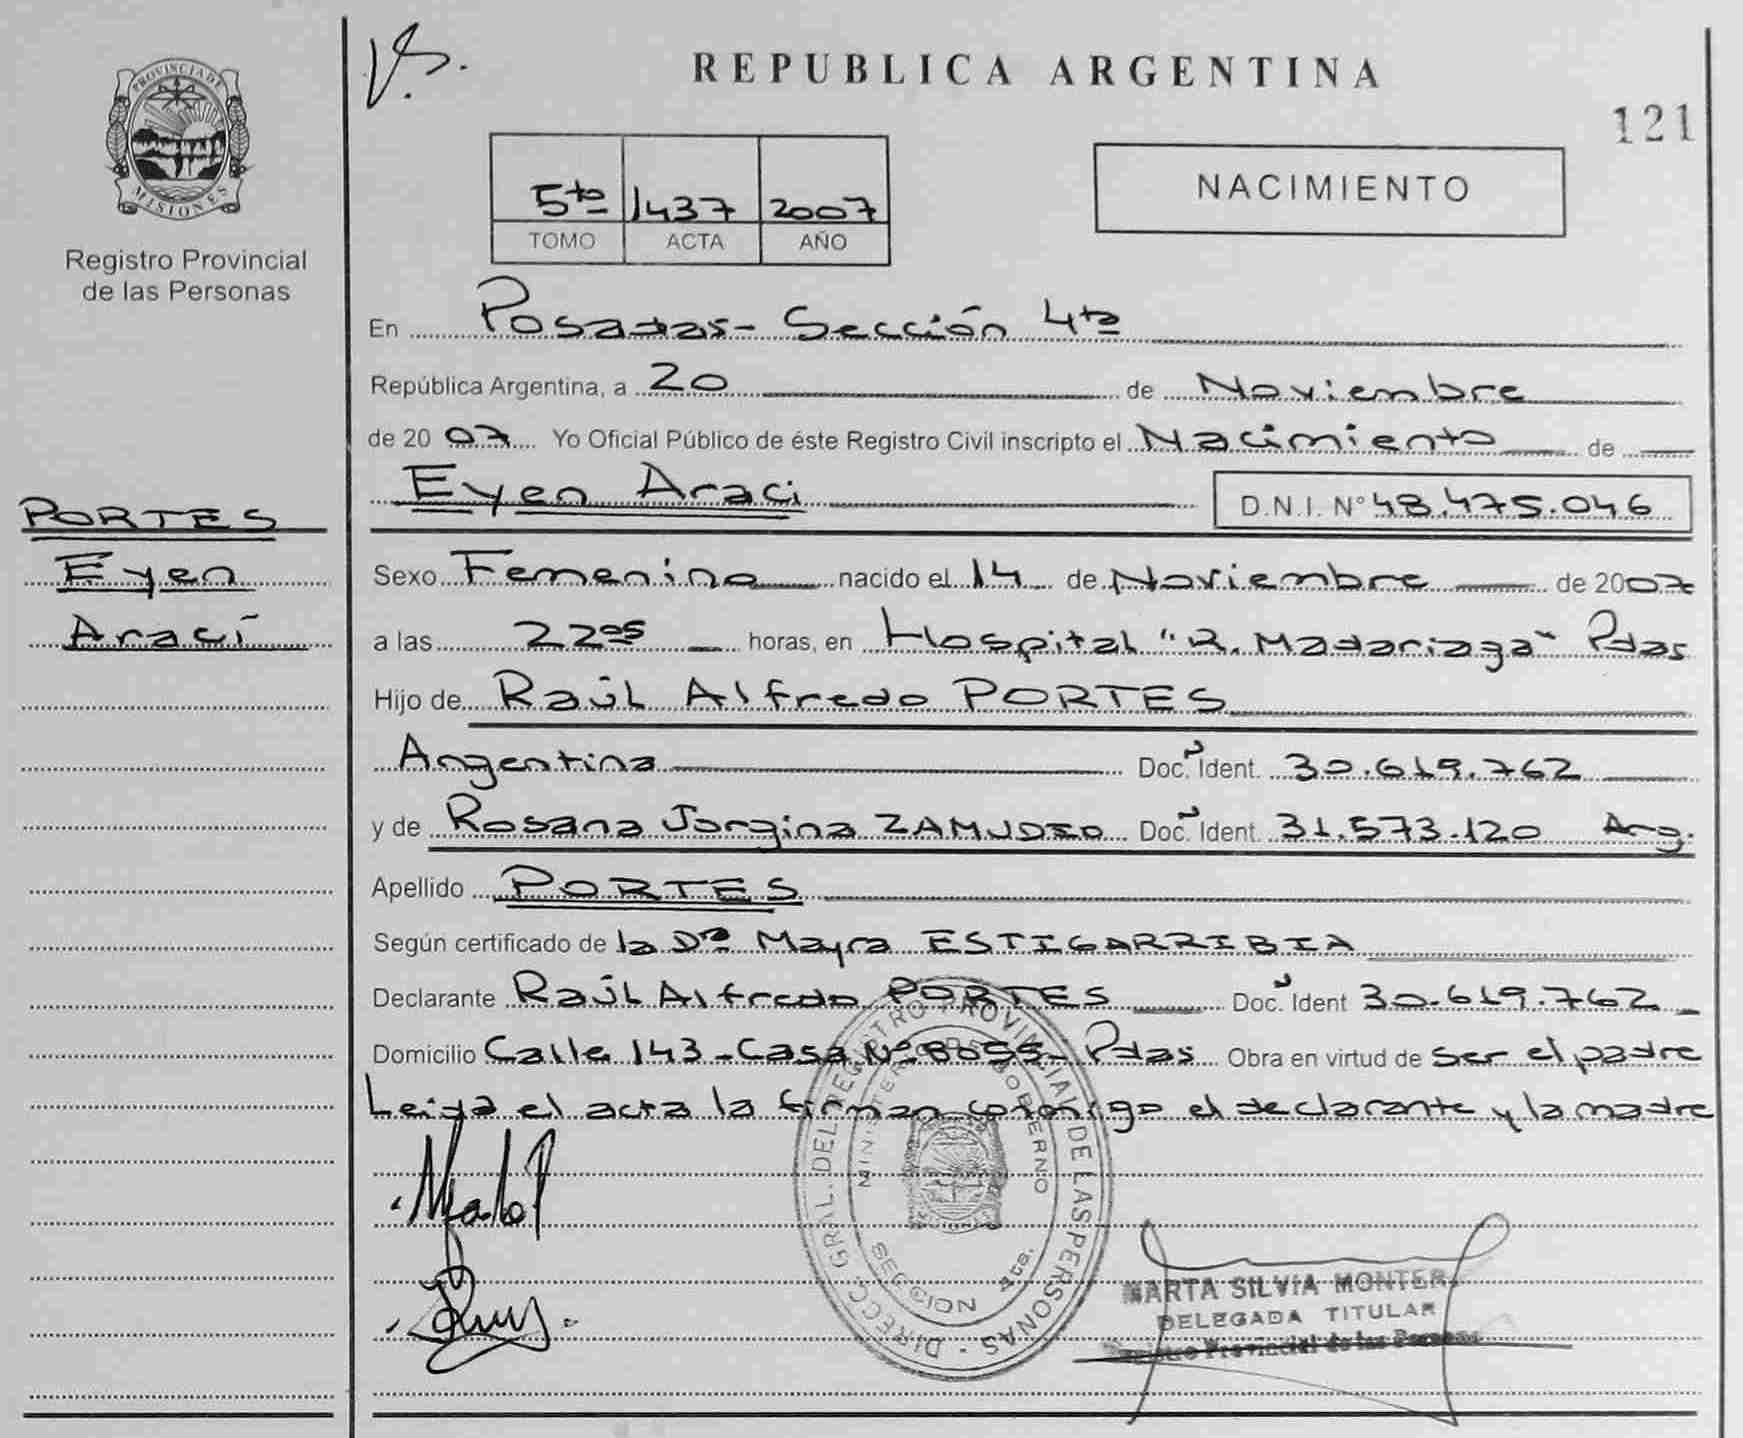 PROVINCIA DE
MISIONES
Registro Provincial
de las Personas
PORTES
Eyen
Aracı́
REPUBLICA ARGENTINA
121
5ta 1437 2007
TOMO ACTA AÑO
NACIMIENTO
En Posadas- Sección 4ta
República Argentina, a 20 de Noviembre
de 2007 Yo Oficial Público de éste Registro Civil inscripto el Nacimiento de
Eyen Araci D.N.I. N° 48.475.046
Sexo Femenino nacido el 14 de Noviembre de 2007
a las 22 05 horas, en Hospital "R. Madariaga" Pdas
Hijo de Raúl Alfredo PORTES
Argentina Doc. Ident. 30.619.762
y de Rosana Jorgina ZAMUDIO Doc. Ident. 31.573.120 Arg.
Apellido PORTES
Según certificado de la Dra Mayra ESTIGARRIBIA
Declarante Raúl Alfredo PORTES Doc. Ident 30.619.762
Domicilio Calle 143 - Casa Nº 8055- Pdas Obra en virtud de ser el padre
Leida el acta la firman conmigo el declarante y la madre
DIRECC. GRAL. DEL REGISTRO PROVINCIAL DE LAS PERSONAS
MINISTERIO DE GOBIERNO
SECCION 4ta.
MARTA SILVIA
DELEGADA TITULAR
Registro Provincial de las Personas